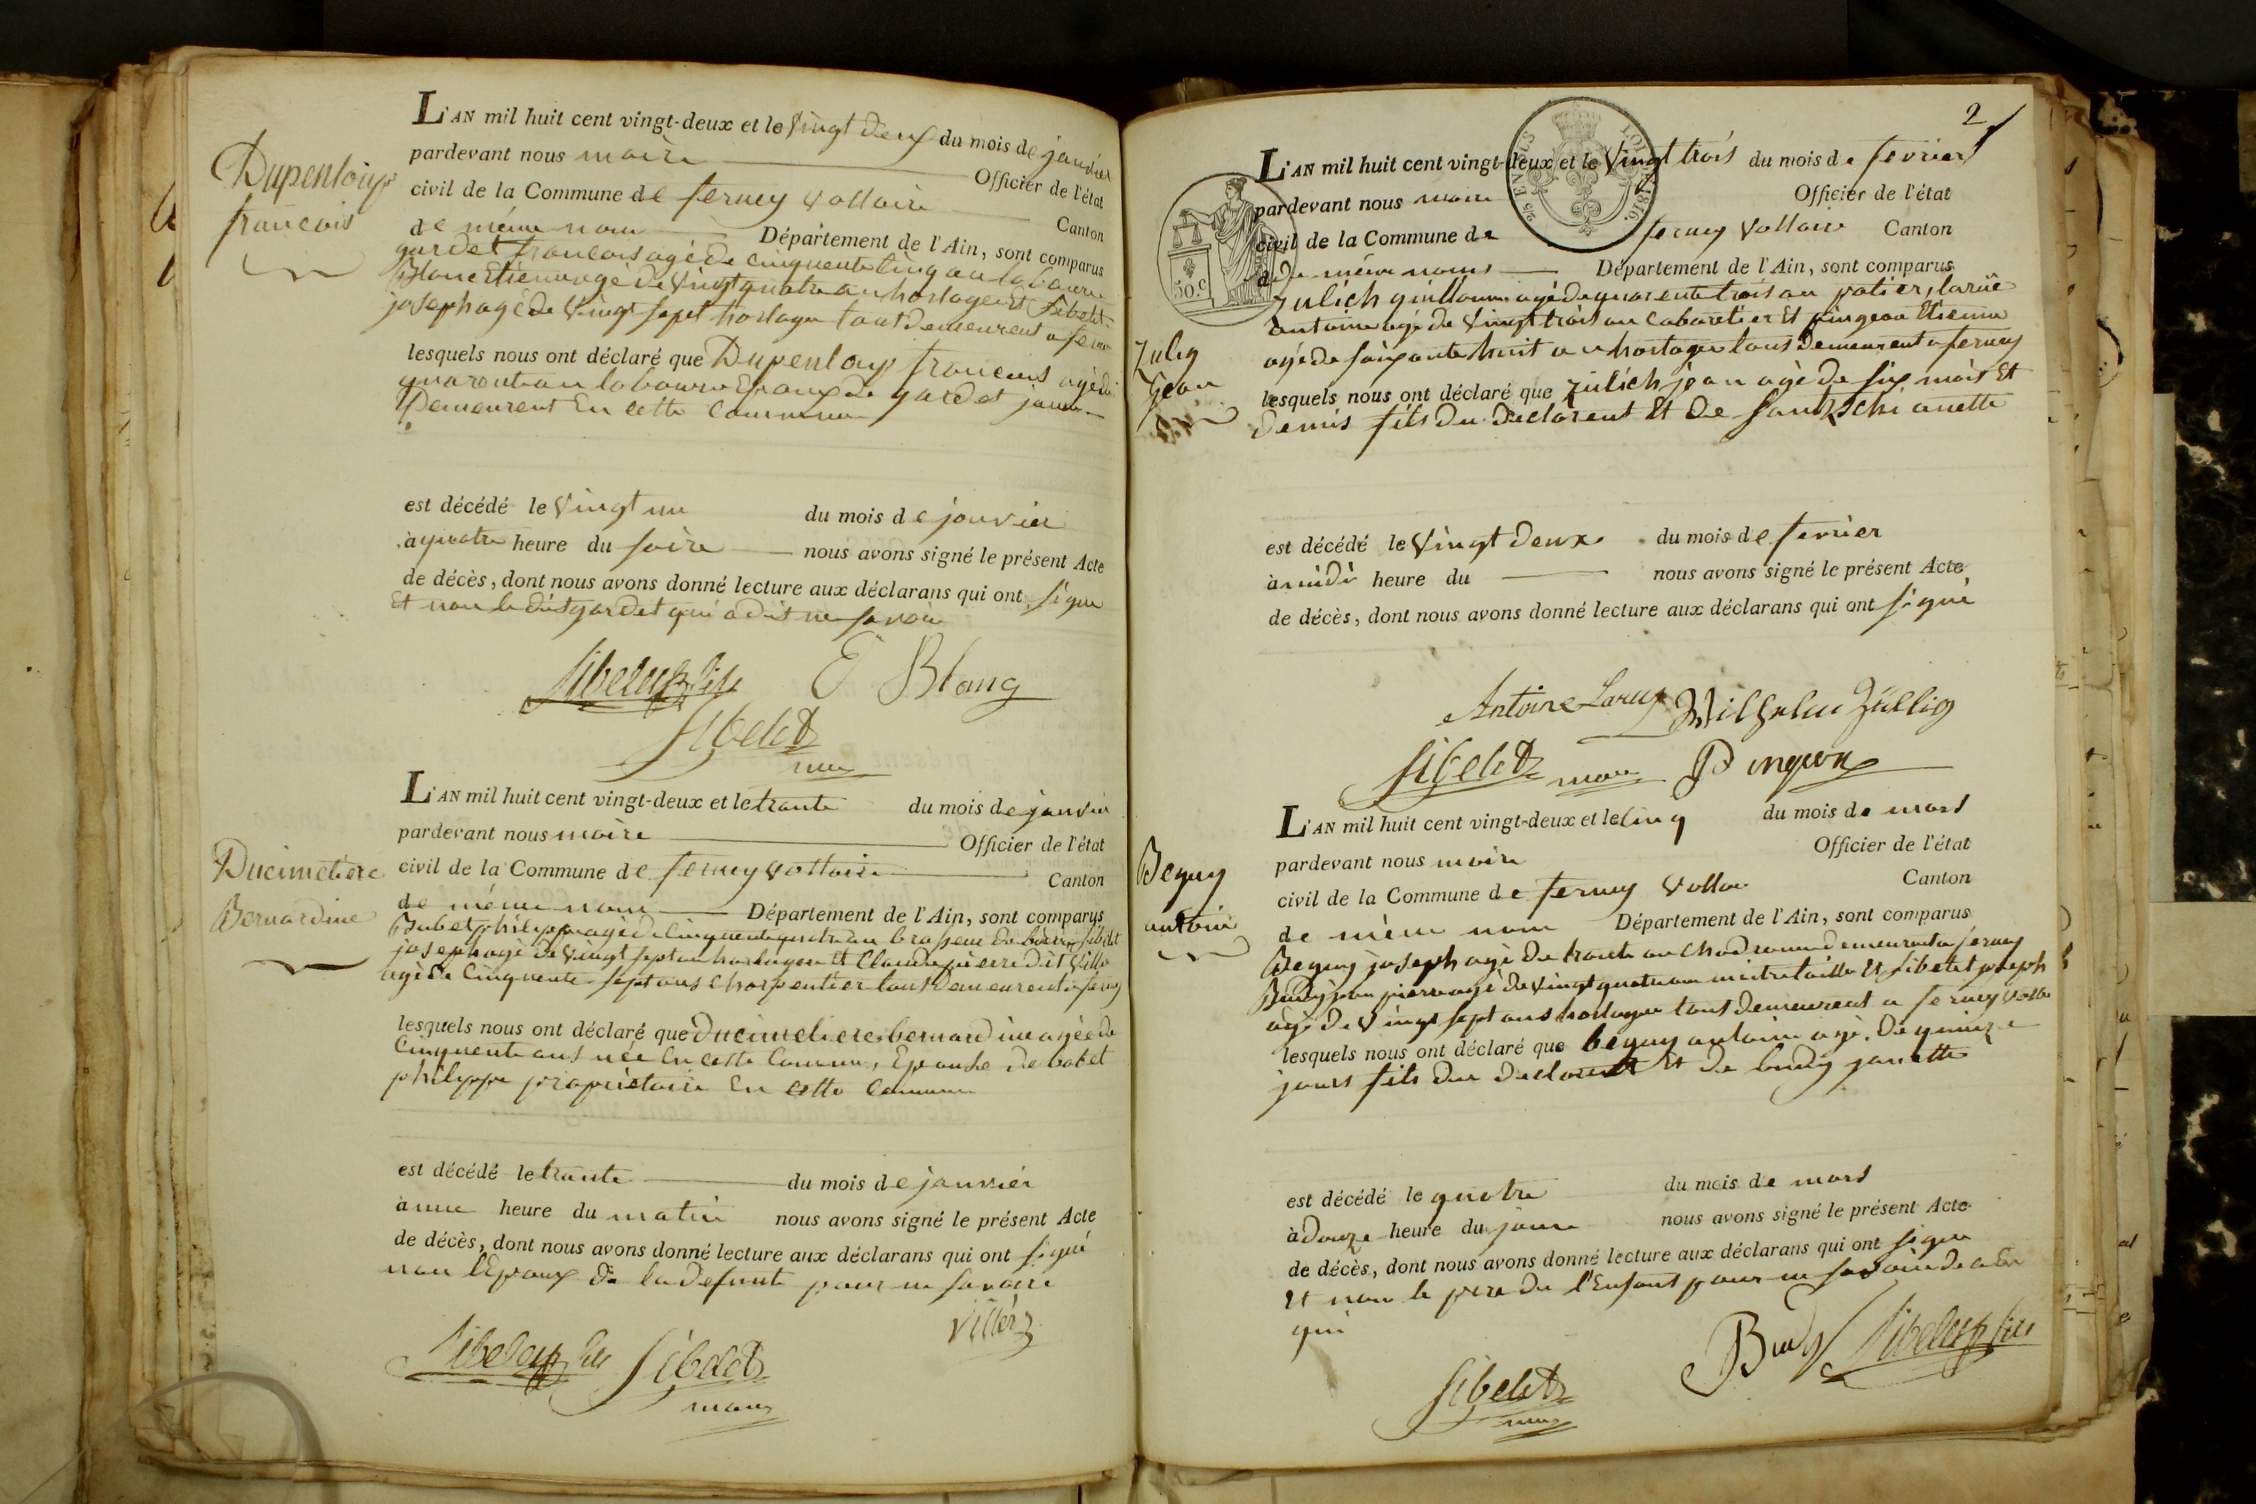 Dupenloup
francois
L'AN mil huit cent vingt-deux et le vingt deux du mois de janvier
pardevant nous maire Officier de l'état
civil de la Commune de ferney voltaire Canton
de même nom Département de l'Ain, sont comparus
gardet francois agé de cinquante cinq an laboureur
Blanc Etienne agé de vingt quatre an horloger Et Sibelet
joseph agé de vingt sept horloger tout demeurent a
lesquels nous ont déclaré que Dupenloup francois agé de
quarente an laboureur Epoux de gardet
Demeurent En cette commune
est décédé le vingt un du mois de janvier
à quatre heure du soire nous avons signé le présent Acte
de décès, dont nous avons donné lecture aux déclarans qui ont signe
Et non le dit gardet qui a dit ne savoir
Sibelet fils E Blanc
Sibelet
maire
Ducimetiere
Bernardine
L'AN mil huit cent vingt-deux et le trante du mois de janvier
pardevant nous maire Officier de l'état
civil de la Commune de ferney voltaire Canton
de même nom Département de l'Ain, sont comparus
Babet philippe agé de cinquente quatre an brasseur de bierre Sibelet
joseph agé de vingt sept an horloger Et Claude pierre dit
agé de cinquente sept ans charpentier tout demeurent a ferney
lesquels nous ont déclaré que Ducimetiere bernardine agée de
cinquente ans née En cette commune, Epouse de babet
philippe propriétaire En cette commune
est décédé le trante du mois de janvier
à une heure du matin nous avons signé le présent Acte
de décès, dont nous avons donné lecture aux déclarans qui ont signé
non l'Epoux de la defunte pour ne savoire
Sibelet fils Sibelet
maire
2
25 EN SUS LOI DE 1816.
50.c
Zulig
jean
L'AN mil huit cent vingt-deux et le vingt trois du mois de fevrier
pardevant nous maire Officier de l'état
civil de la Commune de ferney voltaire Canton
de même noms Département de l'Ain, sont comparus
Zulich guillaume agé de quarente trois an potier, larue
antoine agé de vingt trois an cabaretier Et pingeon Etienne
agé de soixante huit an horloger tout demeurent a ferney
lesquels nous ont déclaré que Zulich jean agé de six mois Et
demis fils du declarent Et de Santzschi anette
est décédé le vingt deux du mois de fevrier
à midi heure du nous avons signé le présent Acte
de décès, dont nous avons donné lecture aux déclarans qui ont signé
Antoine Larue Wilhelm Züllig
Sibelet maire Pingeon
Beguy
antoine
L'AN mil huit cent vingt-deux et le cinq du mois de mars
pardevant nous maire Officier de l'état
civil de la Commune de ferney Canton
de même nom Département de l'Ain, sont comparus
Beguy joseph agé de trante an demeurent a ferney
jean pierre agé de vingt quatre an Et sibelet joseph
agé de vingt sept ans horloger tout demeurent a ferney
lesquels nous ont déclaré que beguy antoine agé de quinze
jours fils du declarent Et de janette
est décédé le quatre du mois de mars
à douze heure du jour nous avons signé le présent Acte
de décès, dont nous avons donné lecture aux déclarans qui ont signe
Et non le pere de l'Enfant pour ne savoir de
qui
Sibelet fils
Sibelet
maire